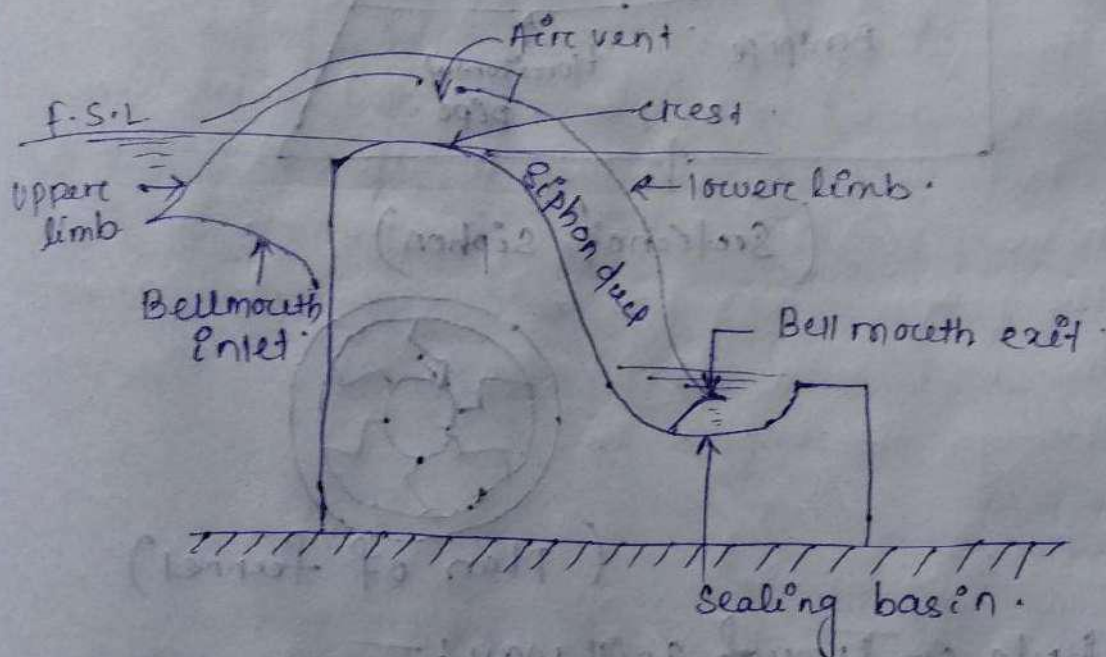 Air vent
F.S.L
crest
upper
limb
lower limb.
Siphon duct
Bellmouth
inlet.
Bell mouth exit.
Sealing basin.